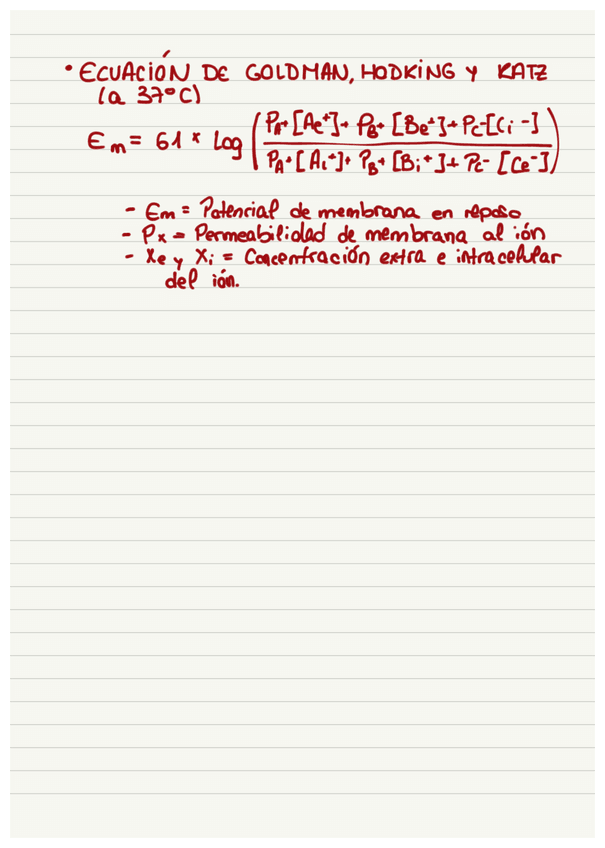 • ECUACIÓN DE GOLDMAN, HODKING y KATZ
(a 37°C)
Em = 61 * Log ( (PA+ [Ae+] + PB+ [Be+] + PC- [Ci-]) / (PA+ [Ai+] + PB+ [Bi+] + PC- [Ce-]) )
- Em = Potencial de membrana en reposo
- Px = Permeabilidad de membrana al ión
- Xe y Xi = Concentración extra e intracelular
del ión.